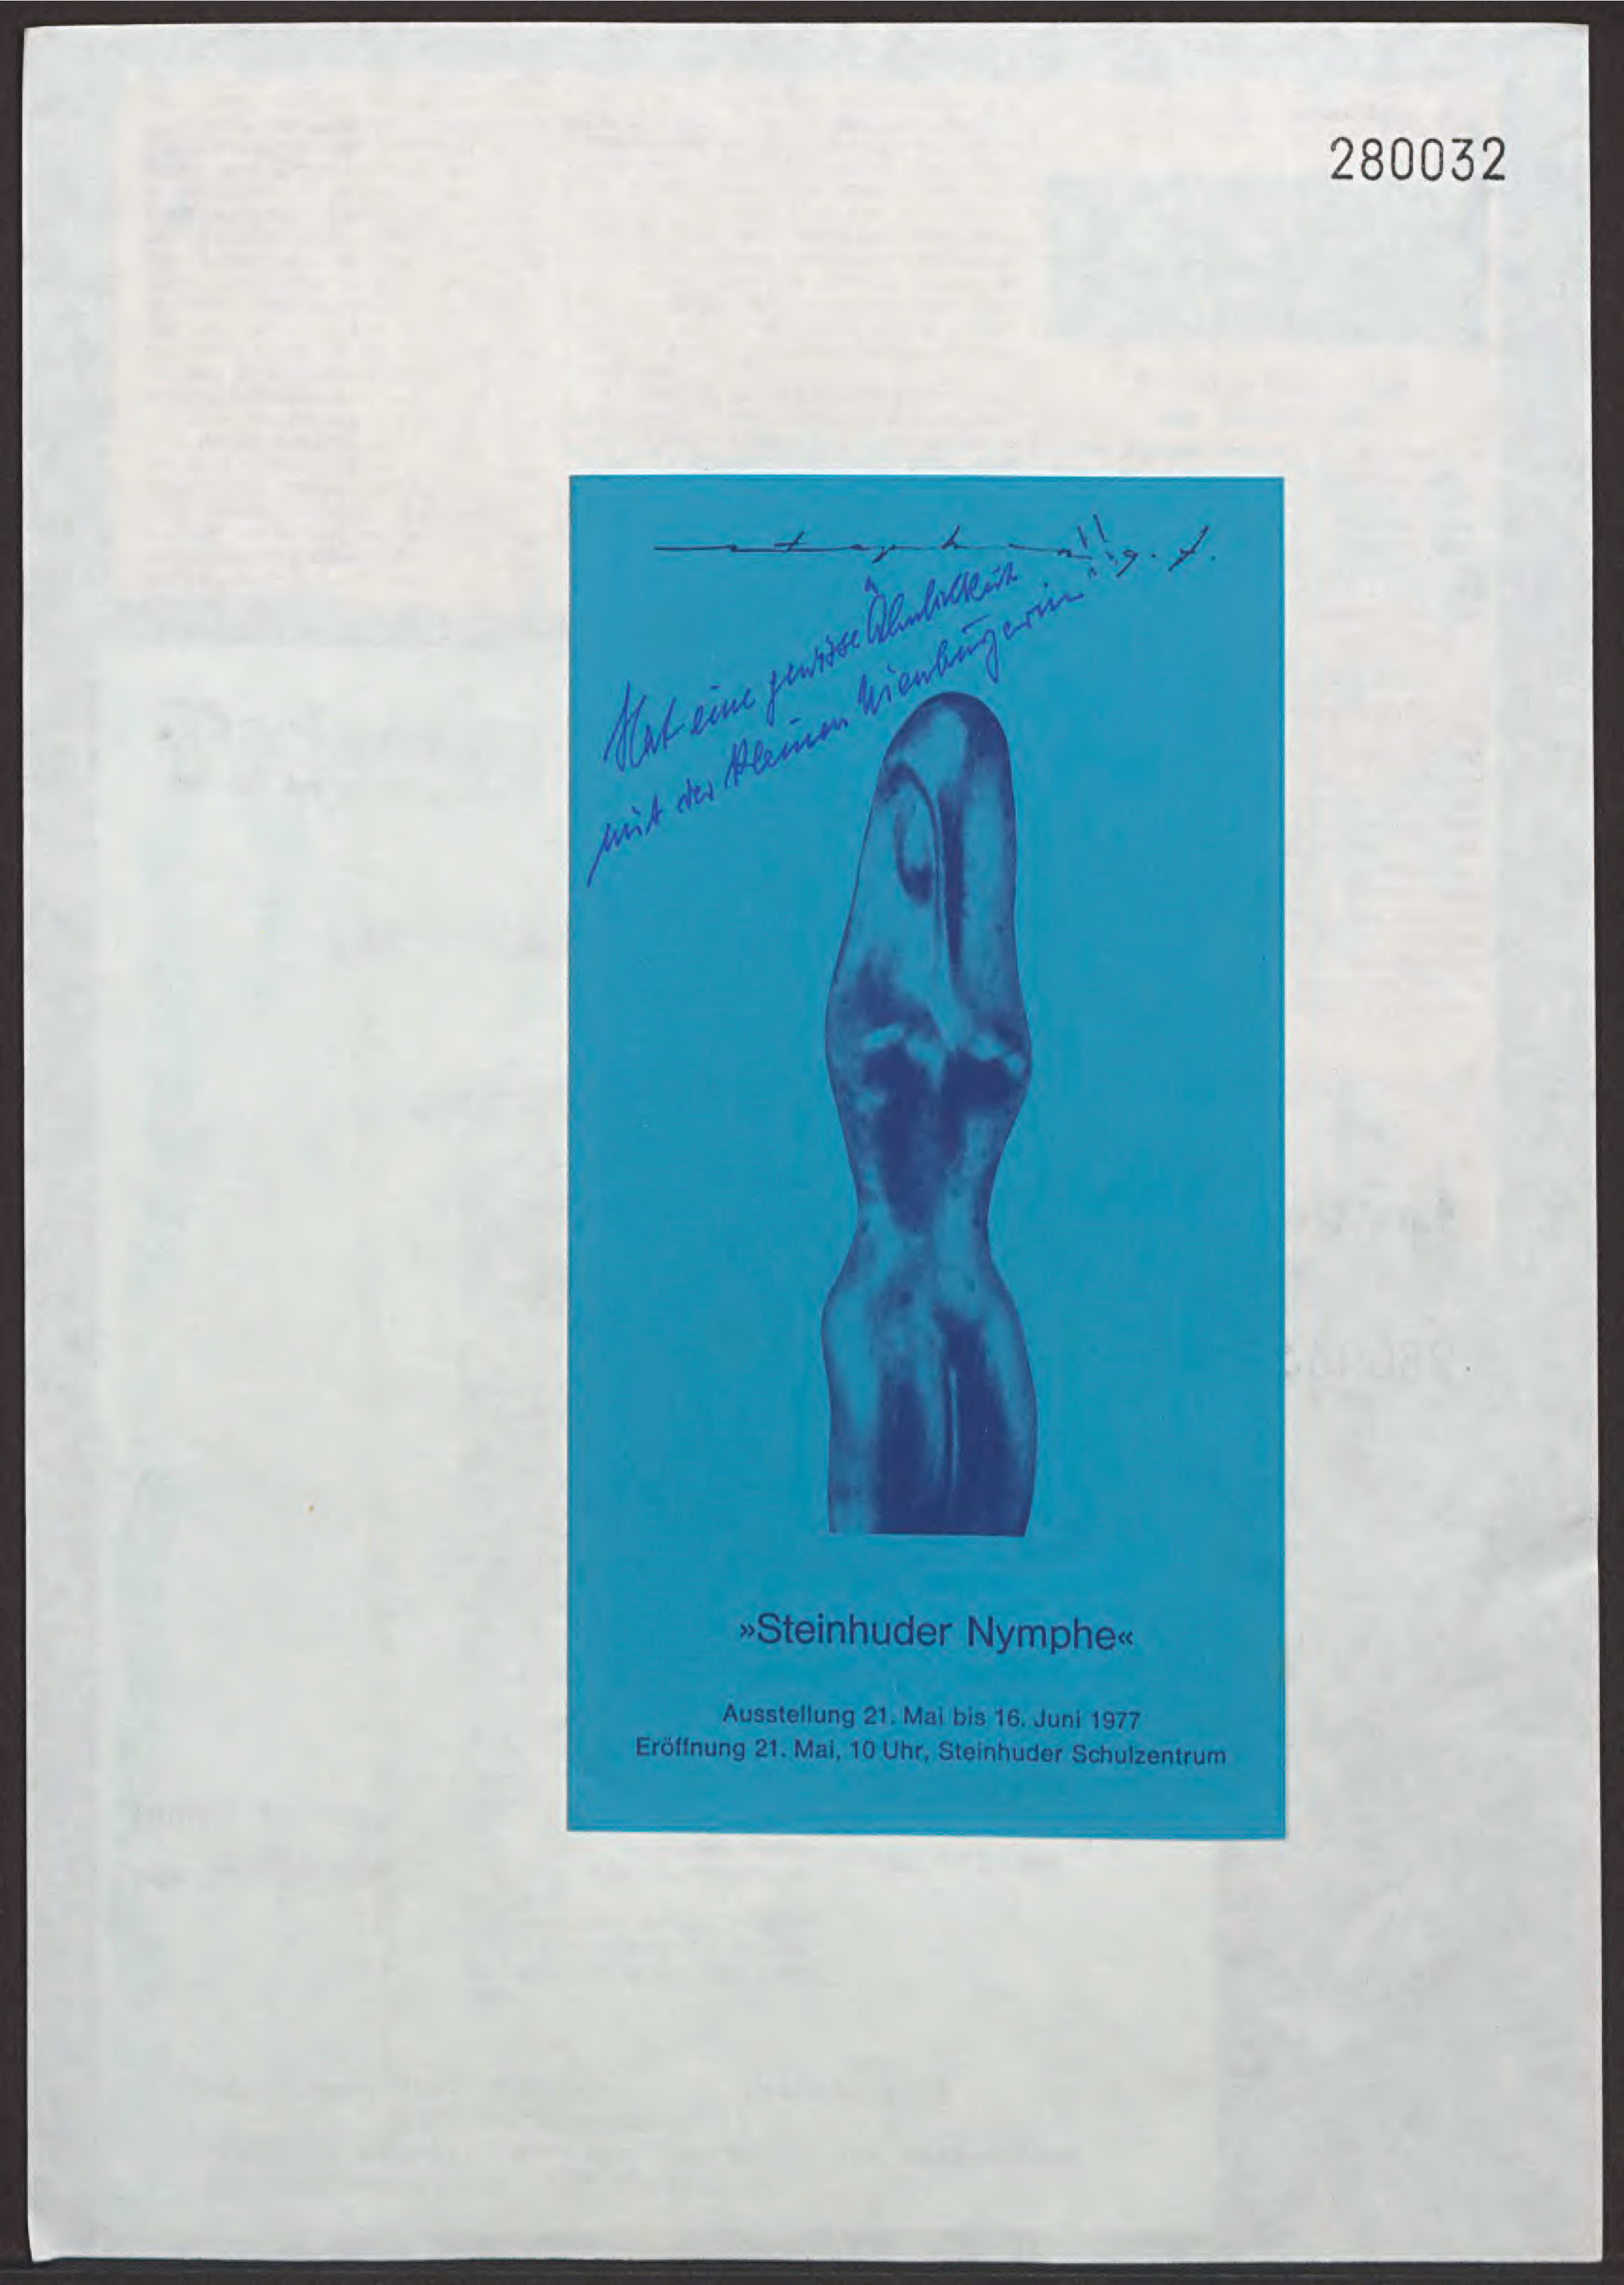 280032
Hat eine gewisse Ähnlichkeit
mit der kleinen Nienburgerin"!!
»Steinhuder Nymphe«
Ausstellung 21. Mai bis 16. Juni 1977
Eröffnung 21. Mai, 10 Uhr, Steinhuder Schulzentrum